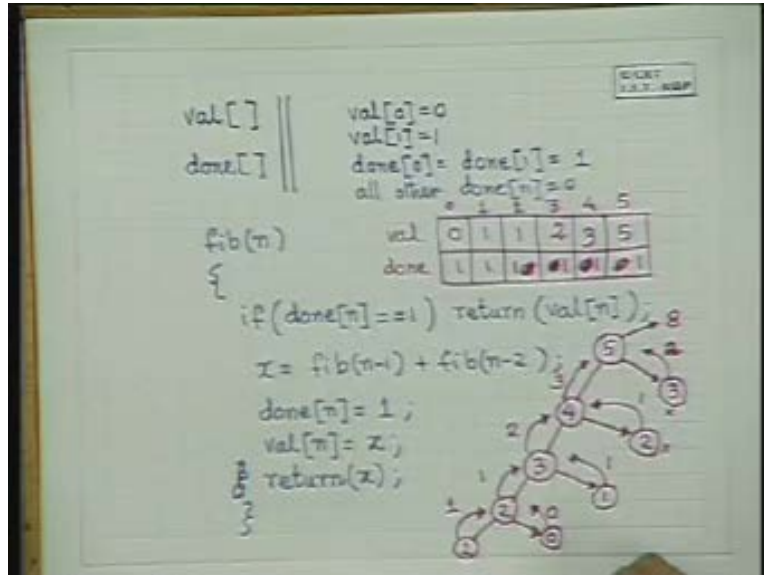 © CET
I.I.T. KGP
val[ ]
val[0]=0
val[1]=1
done[ ]
done[0]= done[1]= 1
all other done[n]=0
0 1 2 3 4 5
fib(n)
val 0 1 1 2 3 5
{
done 1 1 1 1 1 1
if(done[n]==1) return(val[n]);
x= fib(n-1) + fib(n-2);
done[n]= 1;
val[n]= x;
return(x);
}
5 8
3 2 3
4 1
2 2
3 1
1 1
2 0
1 2 0